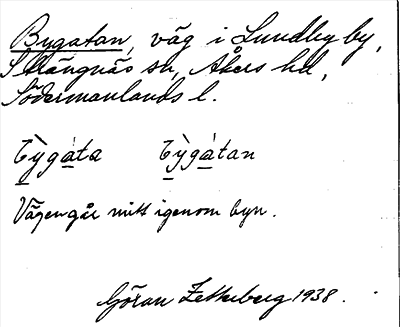 Bygatan, väg i Lundby by,
Strängnäs sn, Åkers hd,
Södermanlands l.
Vägen går mitt igenom byn.
Göran Zetterberg 1938.